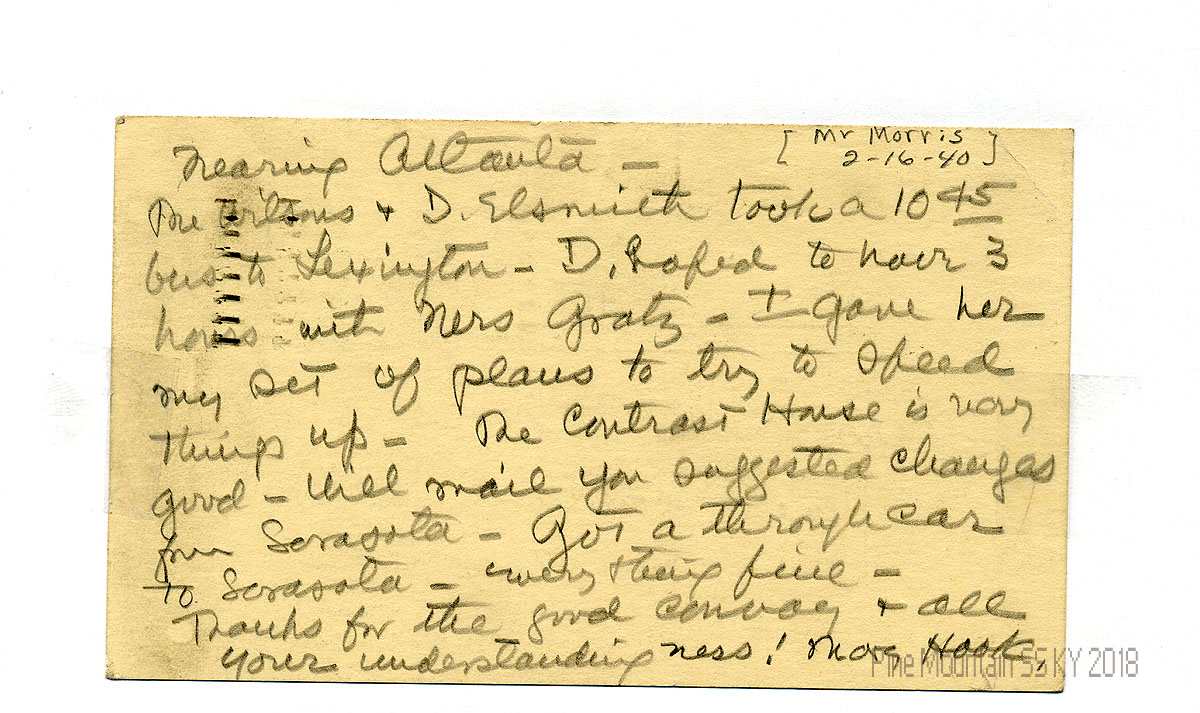 [ Mr Morris
2-16-40 ]
Nearing Atlanta —
The Wilsons + D. Elsmith took a 10 45
bus to Lexington — D. hoped to have 3
hours with Mrs Gratz — I gave her
my set of plans to try to speed
things up — The Contrast House is very
good — Will mail you suggested changes
from Sarasota — Got a through car
to Sarasota — everything fine —
Thanks for the good convoy + all
your understandingness! Mary Hook.
Pine Mountain SS KY 2018